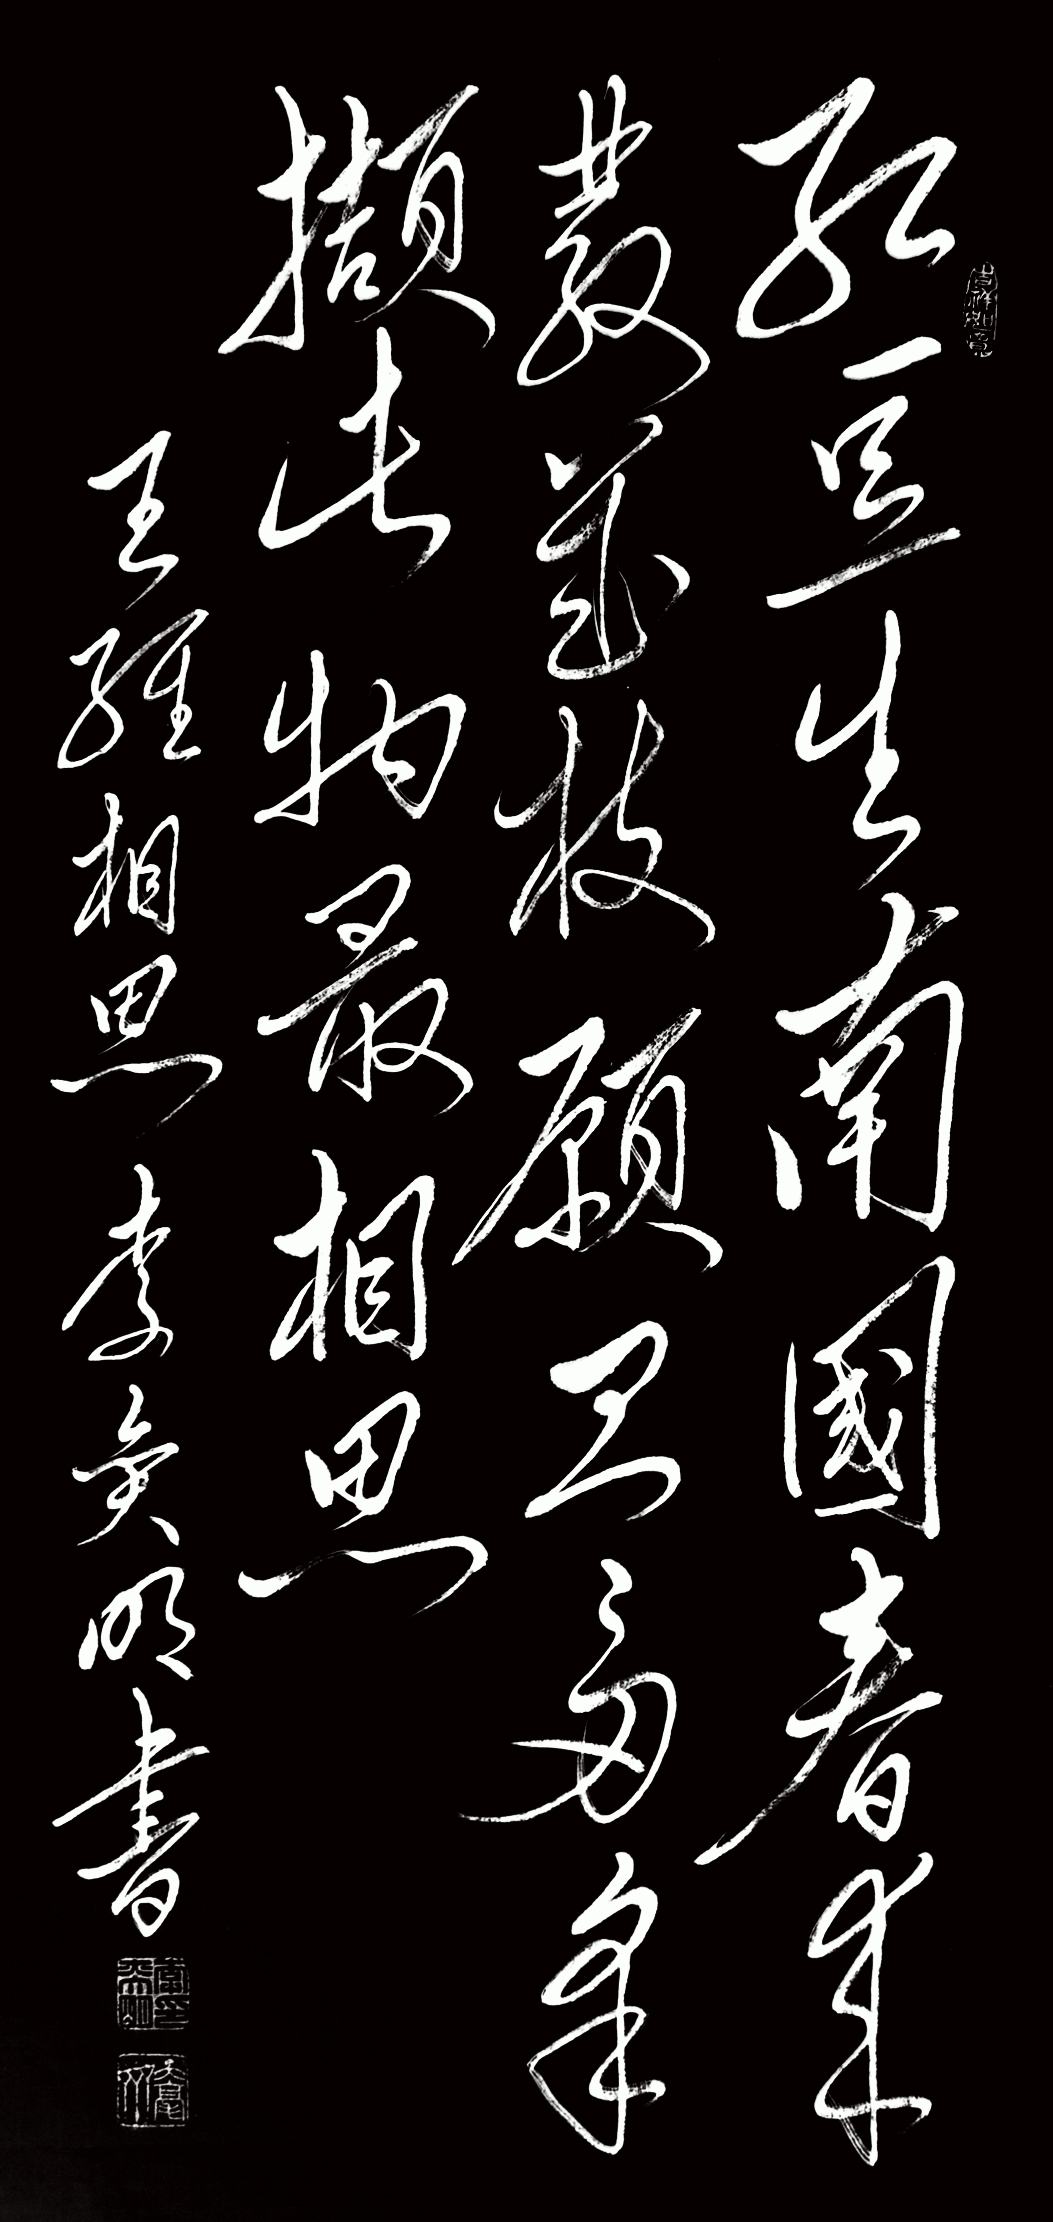 吉祥如意
紅豆生南國春來
發幾枝願君多采
擷此物最相思
王維相思李明書